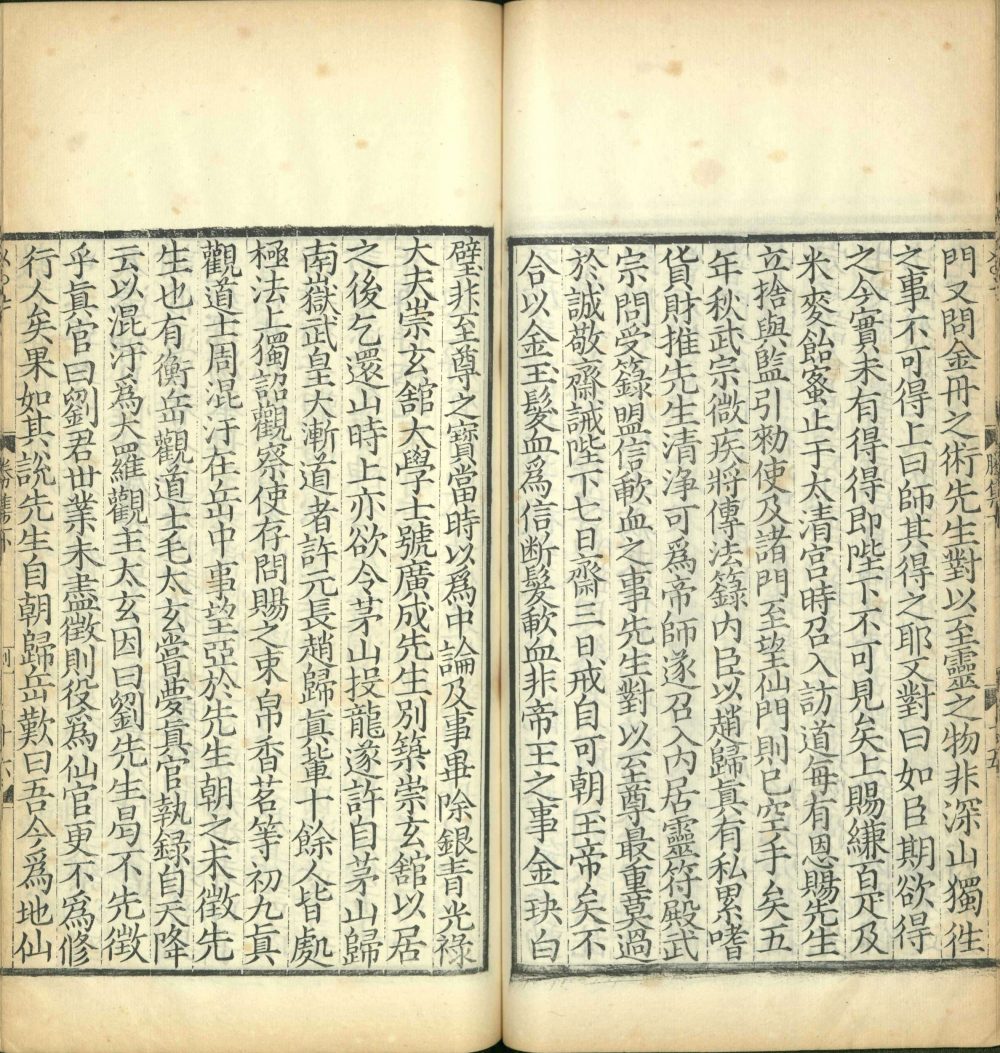 門又問金丹之術先生對以至靈之物非深山獨徃
之事不可得上曰師其得之耶又對曰如臣期欲得
之今實未有得得即陛下不可見矣上賜縑百疋及
米麥飴蜜止于太清宮時召入訪道每有恩賜先生
立捨與監引勑使及諸門至望仙門則已空手矣五
年秋武宗微疾將傳法籙内臣以趙歸真有私累嗜
貨財推先生清浄可爲帝師遂召入内居靈符殿武
宗問受籙盟信歃血之事先生對以至尊最重莫過
於誠敬齋誡陛下七日齋三日戒自可朝玉帝矣不
合以金玉髮血爲信断髮歃血非帝王之事金玦白
璧非至尊之寶當時以爲中論及事畢除銀青光禄
大夫崇玄舘大學士號廣成先生别築崇玄舘以居
之後乞還山時上亦欲令茅山投龍遂許自茅山歸
南嶽武皇大漸道者許元長趙歸真軰十餘人皆處
極法上獨詔觀察使存問賜之束帛香茗等初九真
觀道士周混汙在岳中事望亞於先生朝之未徵先
生也有衡岳觀道士毛太玄嘗夢真官執録自天降
云以混汙爲大羅觀主太玄因曰劉先生曷不先徵
乎真官曰劉君丗業未盡徵則役爲仙官更不爲修
行人矣果如其説先生自朝歸岳歎曰吾今爲地仙
十六